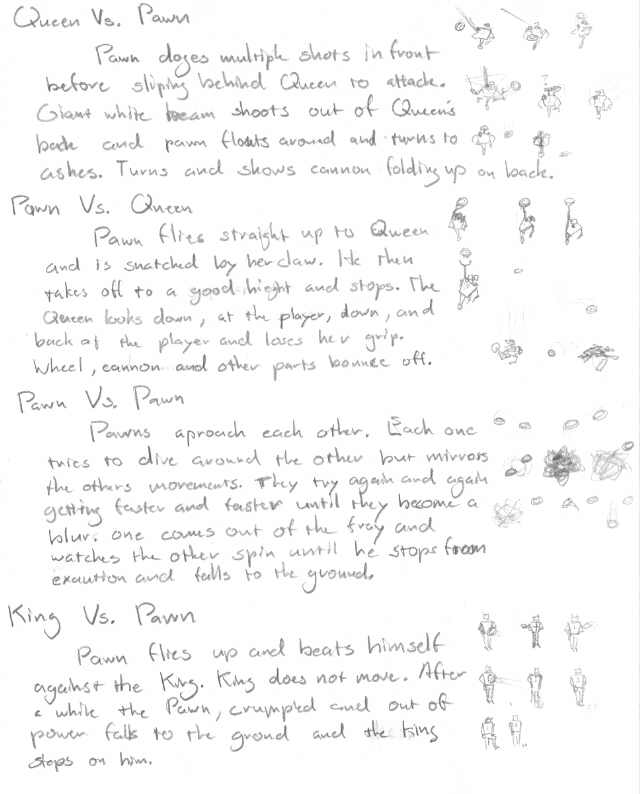 Queen Vs. Pawn
Pawn doges multiple shots in front
before sliping behind Queen to attack.
Giant white beam shoots out of Queen's
back and pawn floats around and turns to
ashes. Turns and shows cannon folding up on back.
Pawn Vs. Queen
Pawn flies straight up to Queen
and is snatched by her claw. He then
takes off to a good hight and stops. The
Queen looks down, at the player, down, and
back at the player and loses her grip.
Wheel, cannon and other parts bounce off.
Pawn Vs. Pawn
Pawns aproach each other. Each one
tries to dive around the other but mirrors
the others movements. They try again and again
getting faster and faster until they become a
blur. one comes out of the fray and
watches the other spin until he stops from
exaution and falls to the ground.
King Vs. Pawn
Pawn flies up and beats himself
against the King. King does not move. After
a while the Pawn, crumpled and out of
power falls to the ground and the king
steps on him.